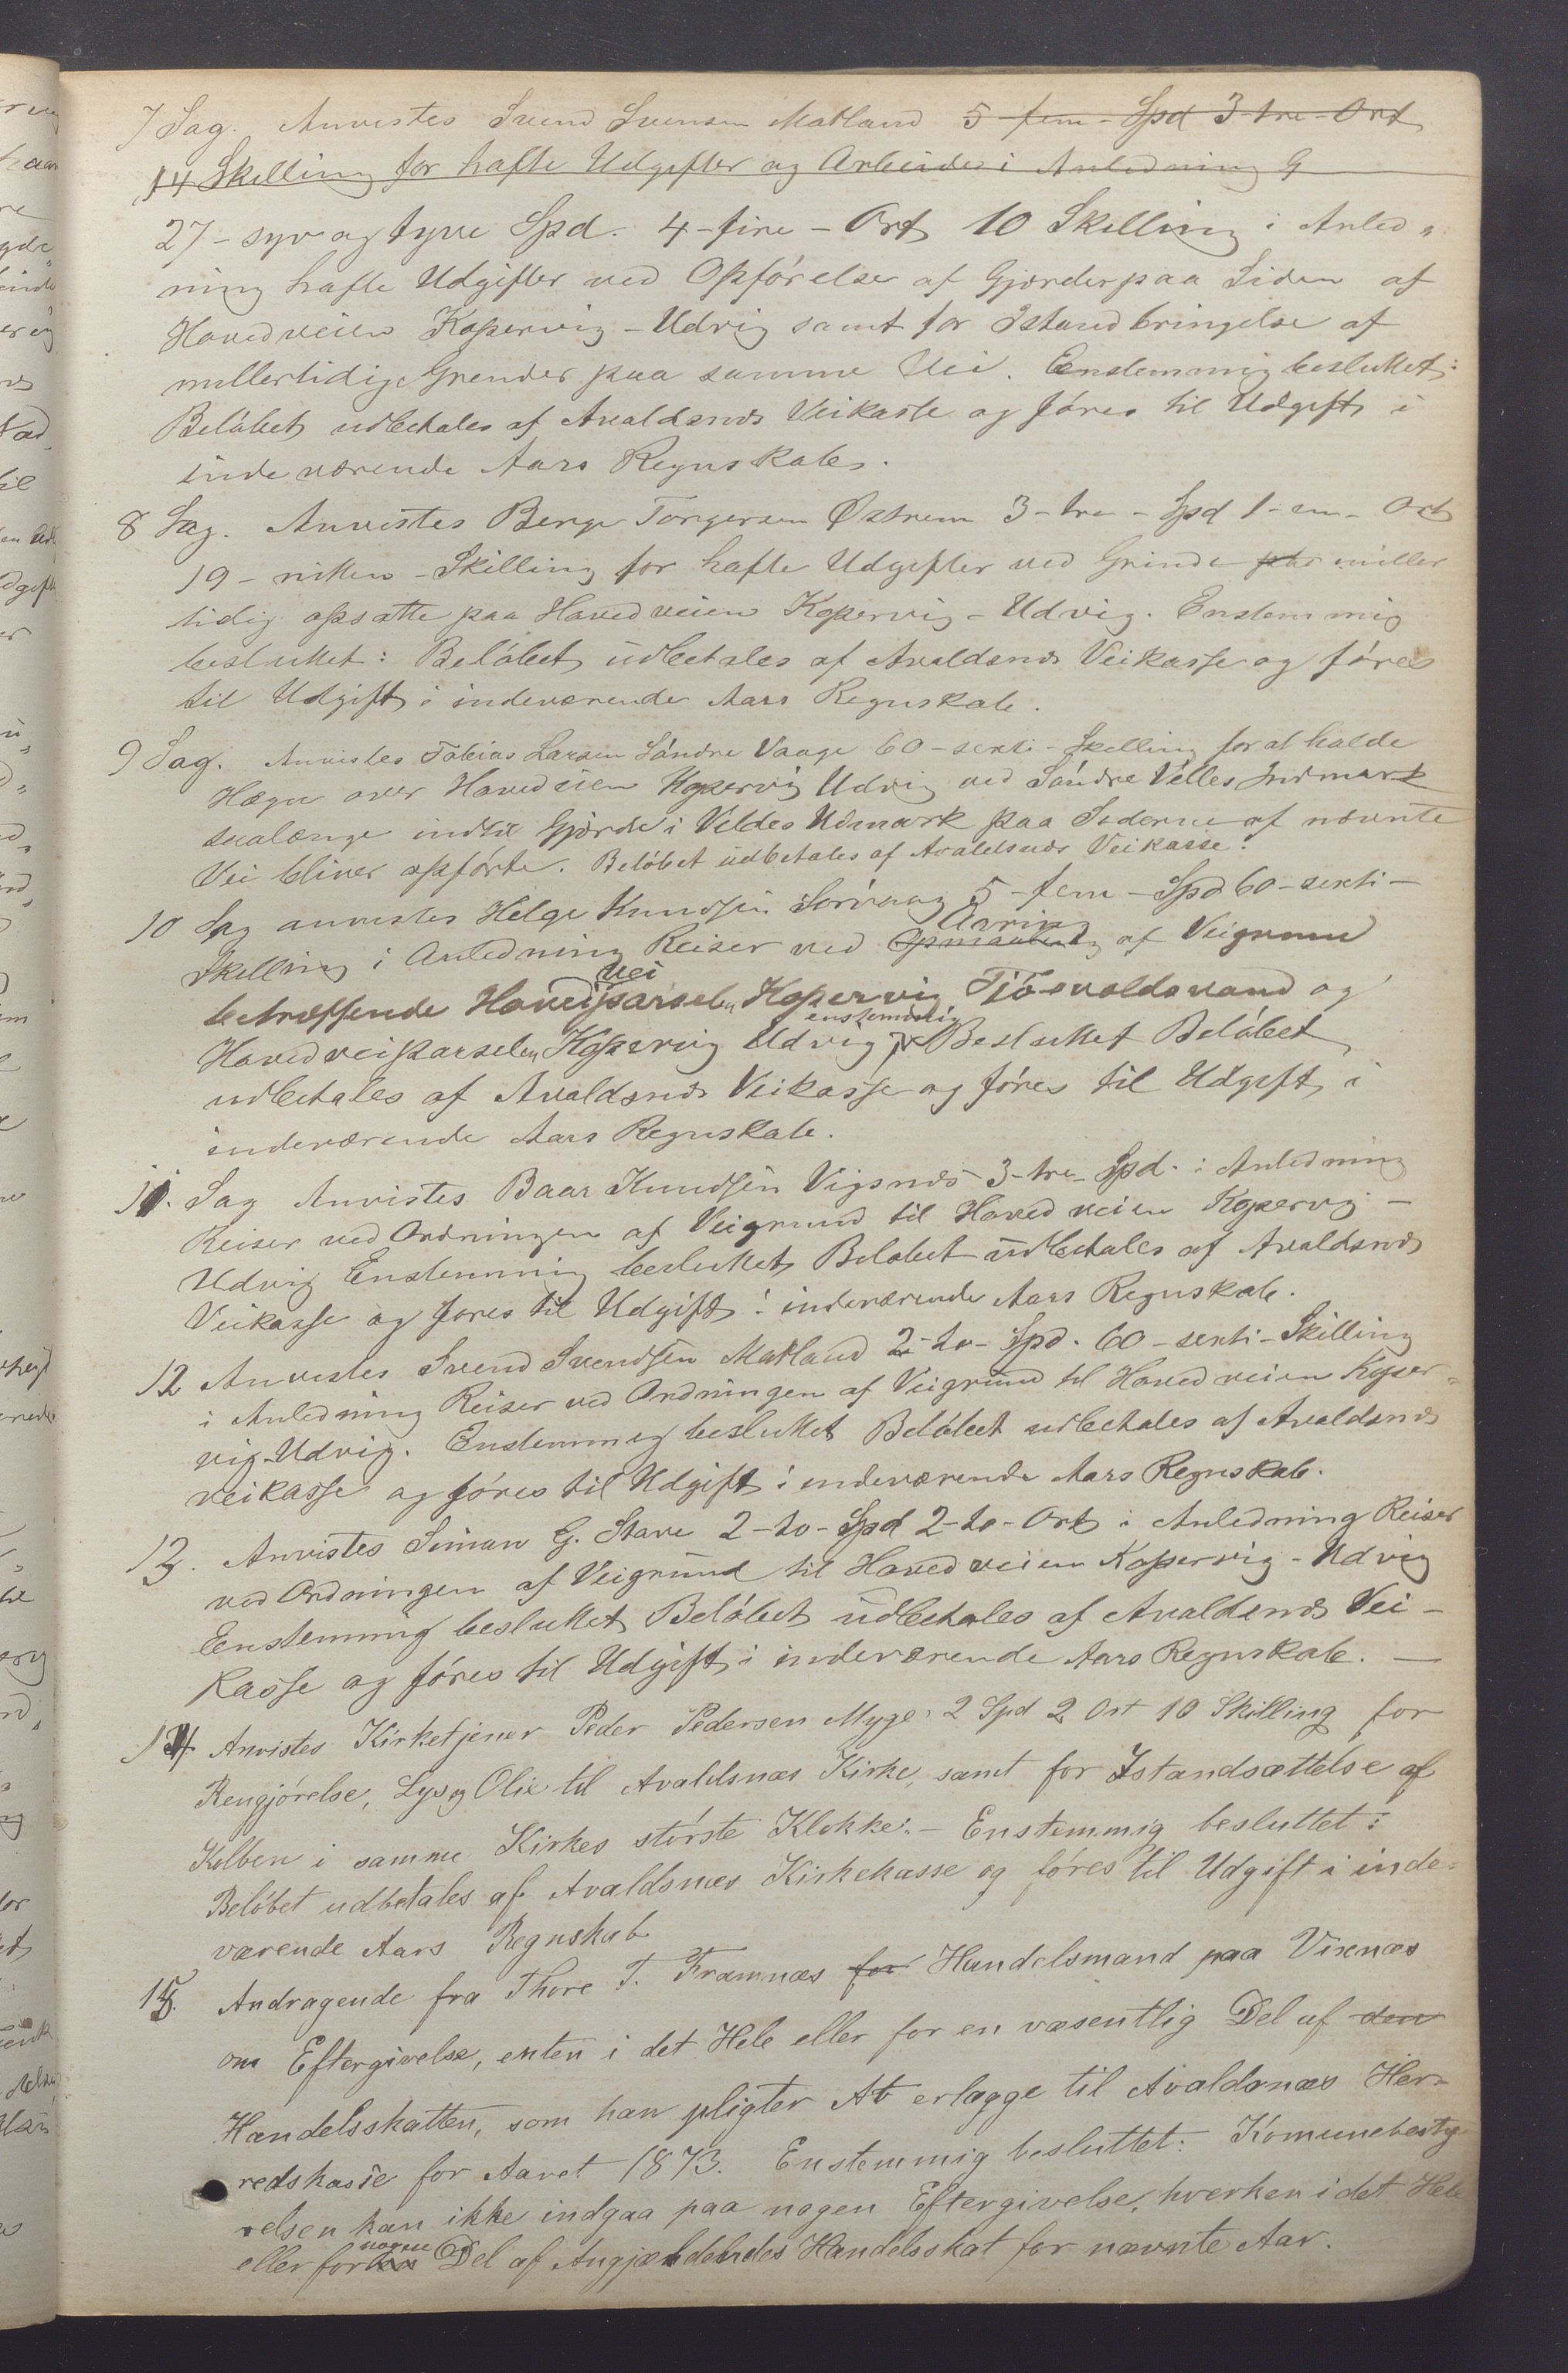 7 Sag. Anvistes Svend Svensen Matland 5-fem-Spd 3-tre-Ort
14 Skilling for hafte Udgifter og Arbeider i Anledning G
27-syv og tyve Spd. 4-fire-Ort 10 Skilling i Anled„
ning hafte Udgifter ved Opførelse af Gjerder paa Siden af
Hovedveien Kopervig-Udvig samt for Istandbringelse af
mellertidige Grender paa samme Vei. Enstemmig besluttet:
Beløbet udbetales af Avaldsnæs Veikasse og føres til Udgift i
indeværende Aars Regnskab.
8 Sag. Anvistes Berge Torgersen Østrem 3-tre-Spd 1-en-Ort
19-nitten-Skilling for hafte Udgifter ved Grinde paa miller
tidig opsatte paa Hovedveien Kopervig-Udvig. Enstemmig
besluttet: Beløbet udbetales af Avaldsnæs Veikasse og føres
til Udgift i indeværende Aars Regnskab.
9 Sag. Anvistes Tobias Larsen Søndre Vaage 60-sexti-Skelling for at holde
Hægn over Hovedveien Kopervig Udvig ved Søndre Velles Indmark
saalænge indtil Gjerde i Veldes Udmark paa Siderne af nævnte
Vei bliver opførte. Beløbet udbetales af Avaldsnæs Veikasse.
10 Sag anvistes Helge Knudsen Sørvaag 5-fem-Spd 60-sexti-
Skelling i Anledning Reiser ved Opmaaling Ordning af Veigrund
betræffende Hovedveiparselen Kopervig Tjøsvoldsvand og
Hovedveiparselen Kopervig Udvig enstemmig Besluttet Beløbet
udbetales af Avaldsnæs Veikasse og føres til Udgift i
indeværende Aars Regnskab.
11. Sag Anvistes Baar Knudsen Vigsnæs 3-tre-Spd. i Anledning
Reiser ved Ordningen af Veigrund til Hovedveien Kopervig-
Udvig Enstemmig besluttet Beløbet udbetales af Avaldsnæs
Veikasse og føres til Udgift i indeværende Aars Regnskab.
12 Anvistes Svend Svendsen Matland 2-to-Spd. 60-sexti-Skilling
i Anledning Reiser ved Ordningen af Veigrund til Hovedveien Koper-
vig-Udvig. Enstemmig besluttet Beløbet udbetales af Avaldsnæs
veikasse og føres til Udgift i indeværende Aars Regnskab.
13. Anvistes Siman G. Stave 2-to-Spd 2-to-Ort i Anledning Reiser
ved Ordningen af Veigrund til Hovedveien Kopervig-Udvig
Eenstemmig besluttet Beløbet udbetales af Avaldsnæs Vei-
kasse og føres til Udgift i indeværende Aars Regnskab. —
14 Anvistes Kirketjener Peder Pedersen Myge: 2 Spd 2 Ort 10 Skilling for
Rengjørelse, Lys og Olie til Avaldsnæs Kirke, samt for Istandsættelse af
Kolben i samme Kirkes største Klokke. — Enstemmig besluttet:
Beløbet udbetales af Avaldsnæs Kirkekasse og føres til Udgift i inde-
værende Aars Regnskab
15. Andragende fra Thore T. Framnæs for Handelsmand paa Vixnæs
om Eftergivelse, enten i det Hele eller for en væsentlig Del af den
Handelsskatten, som han pligter At erlægge til Avaldsnæs Her-
redskasse for Aaret 1873. Enstemmig besluttet: Komunebesty-
relsen kan ikke indgaa paa nogen Eftergivelse, hverken i det Hele
eller for nogen Del af Angjældendes Handelsskat for nævnte Aar.